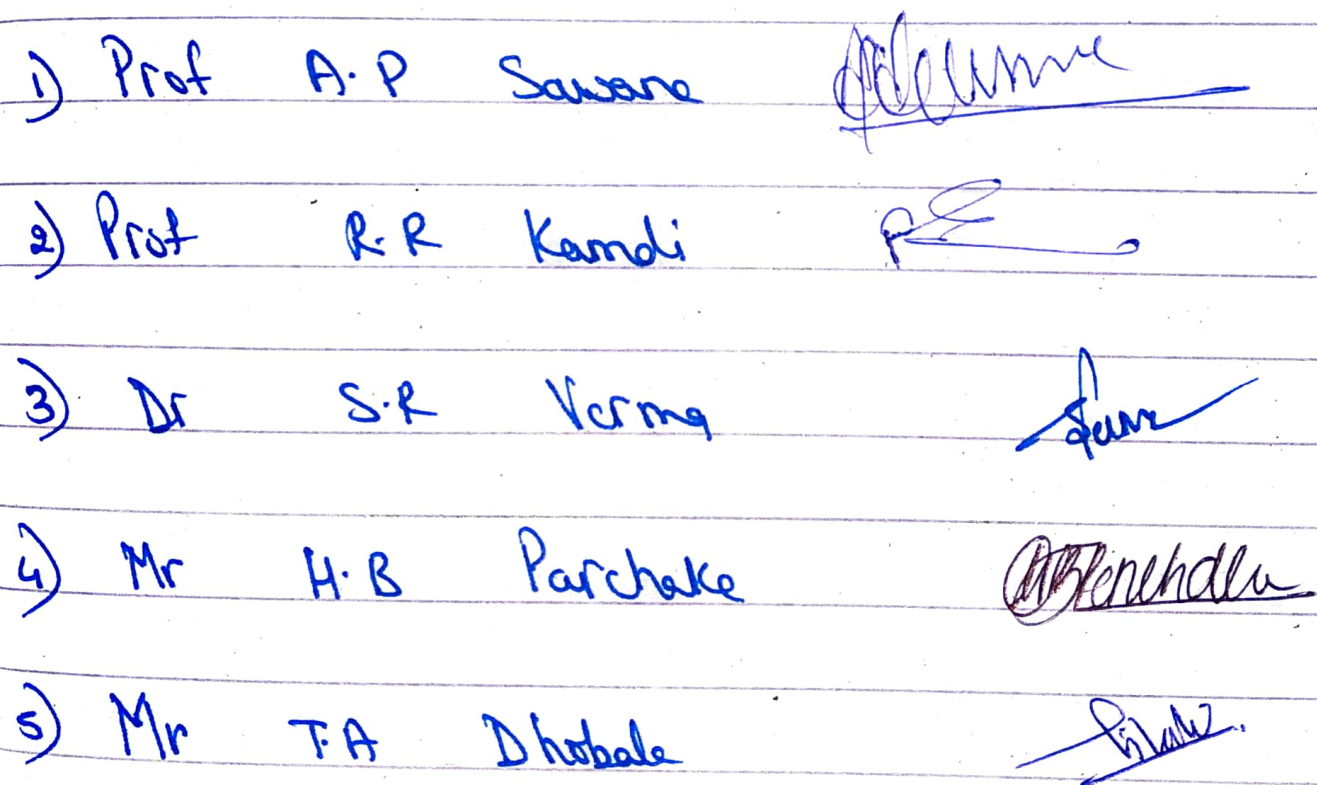 1) Prof A.P Sawane
2) Prof R.R Kamdi
3) Dr S.R Verma
4) Mr H.B Parchake
5) Mr T.A Dhobale